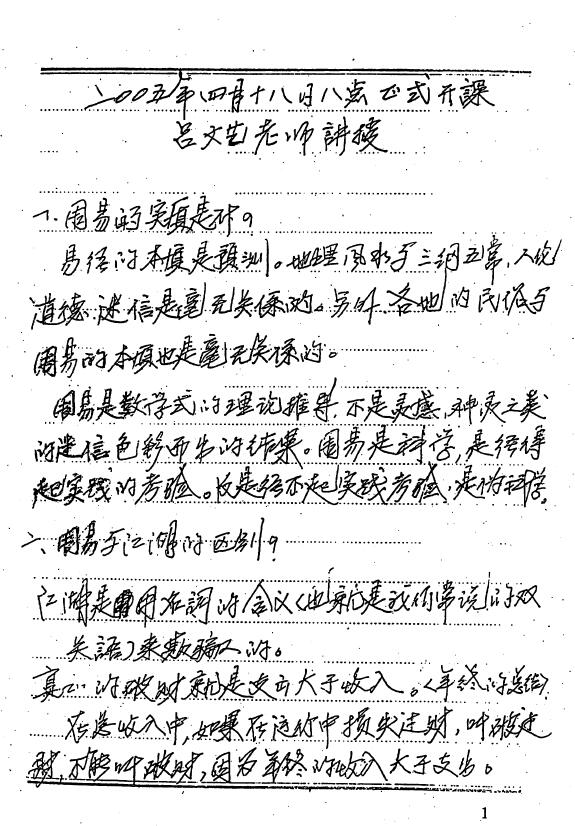 二00五年四月十八日八点正式开課
吕文艺老师講授
一.周易的实质是什?
易经的本质是預测。地理風水与三纲五常,人伦
道德.迷信是毫无关係的。另外.各地的民俗与
周易的本质也是毫无关係的。
周易是数学式的理论推导.不是灵感,神灵之类
的迷信色彩而出的结果。周易是科学,是经得
起实践的考验。凡是经不起实践考验,是伪科学。
二、周易与江湖的区别?
江湖是用名詞的含义(也就是我们常说的双
关語)来欺骗人的。
真正的破财就是支出大于收入。(年终的总结)
在总收入中,如果在运作中損失过财,叫破过
财,不能叫破财,因为年终的收入大于支出。
1